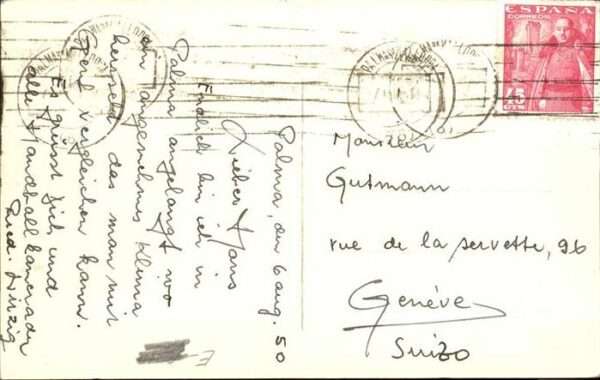 Palma, den 6 aug. 50
Lieber Hans
Endlich bin ich in
Palma angelangt wo
ein angenehmes Klima
herrscht das man mit
Genf vergleichen kann.
Es grüsst Dich und
alle Handballkameraden
Fred.
ESPAÑA
CORREOS
45
CTS
Monsieur
Gutmann
rue de la servette, 96
Genéve
Suizo